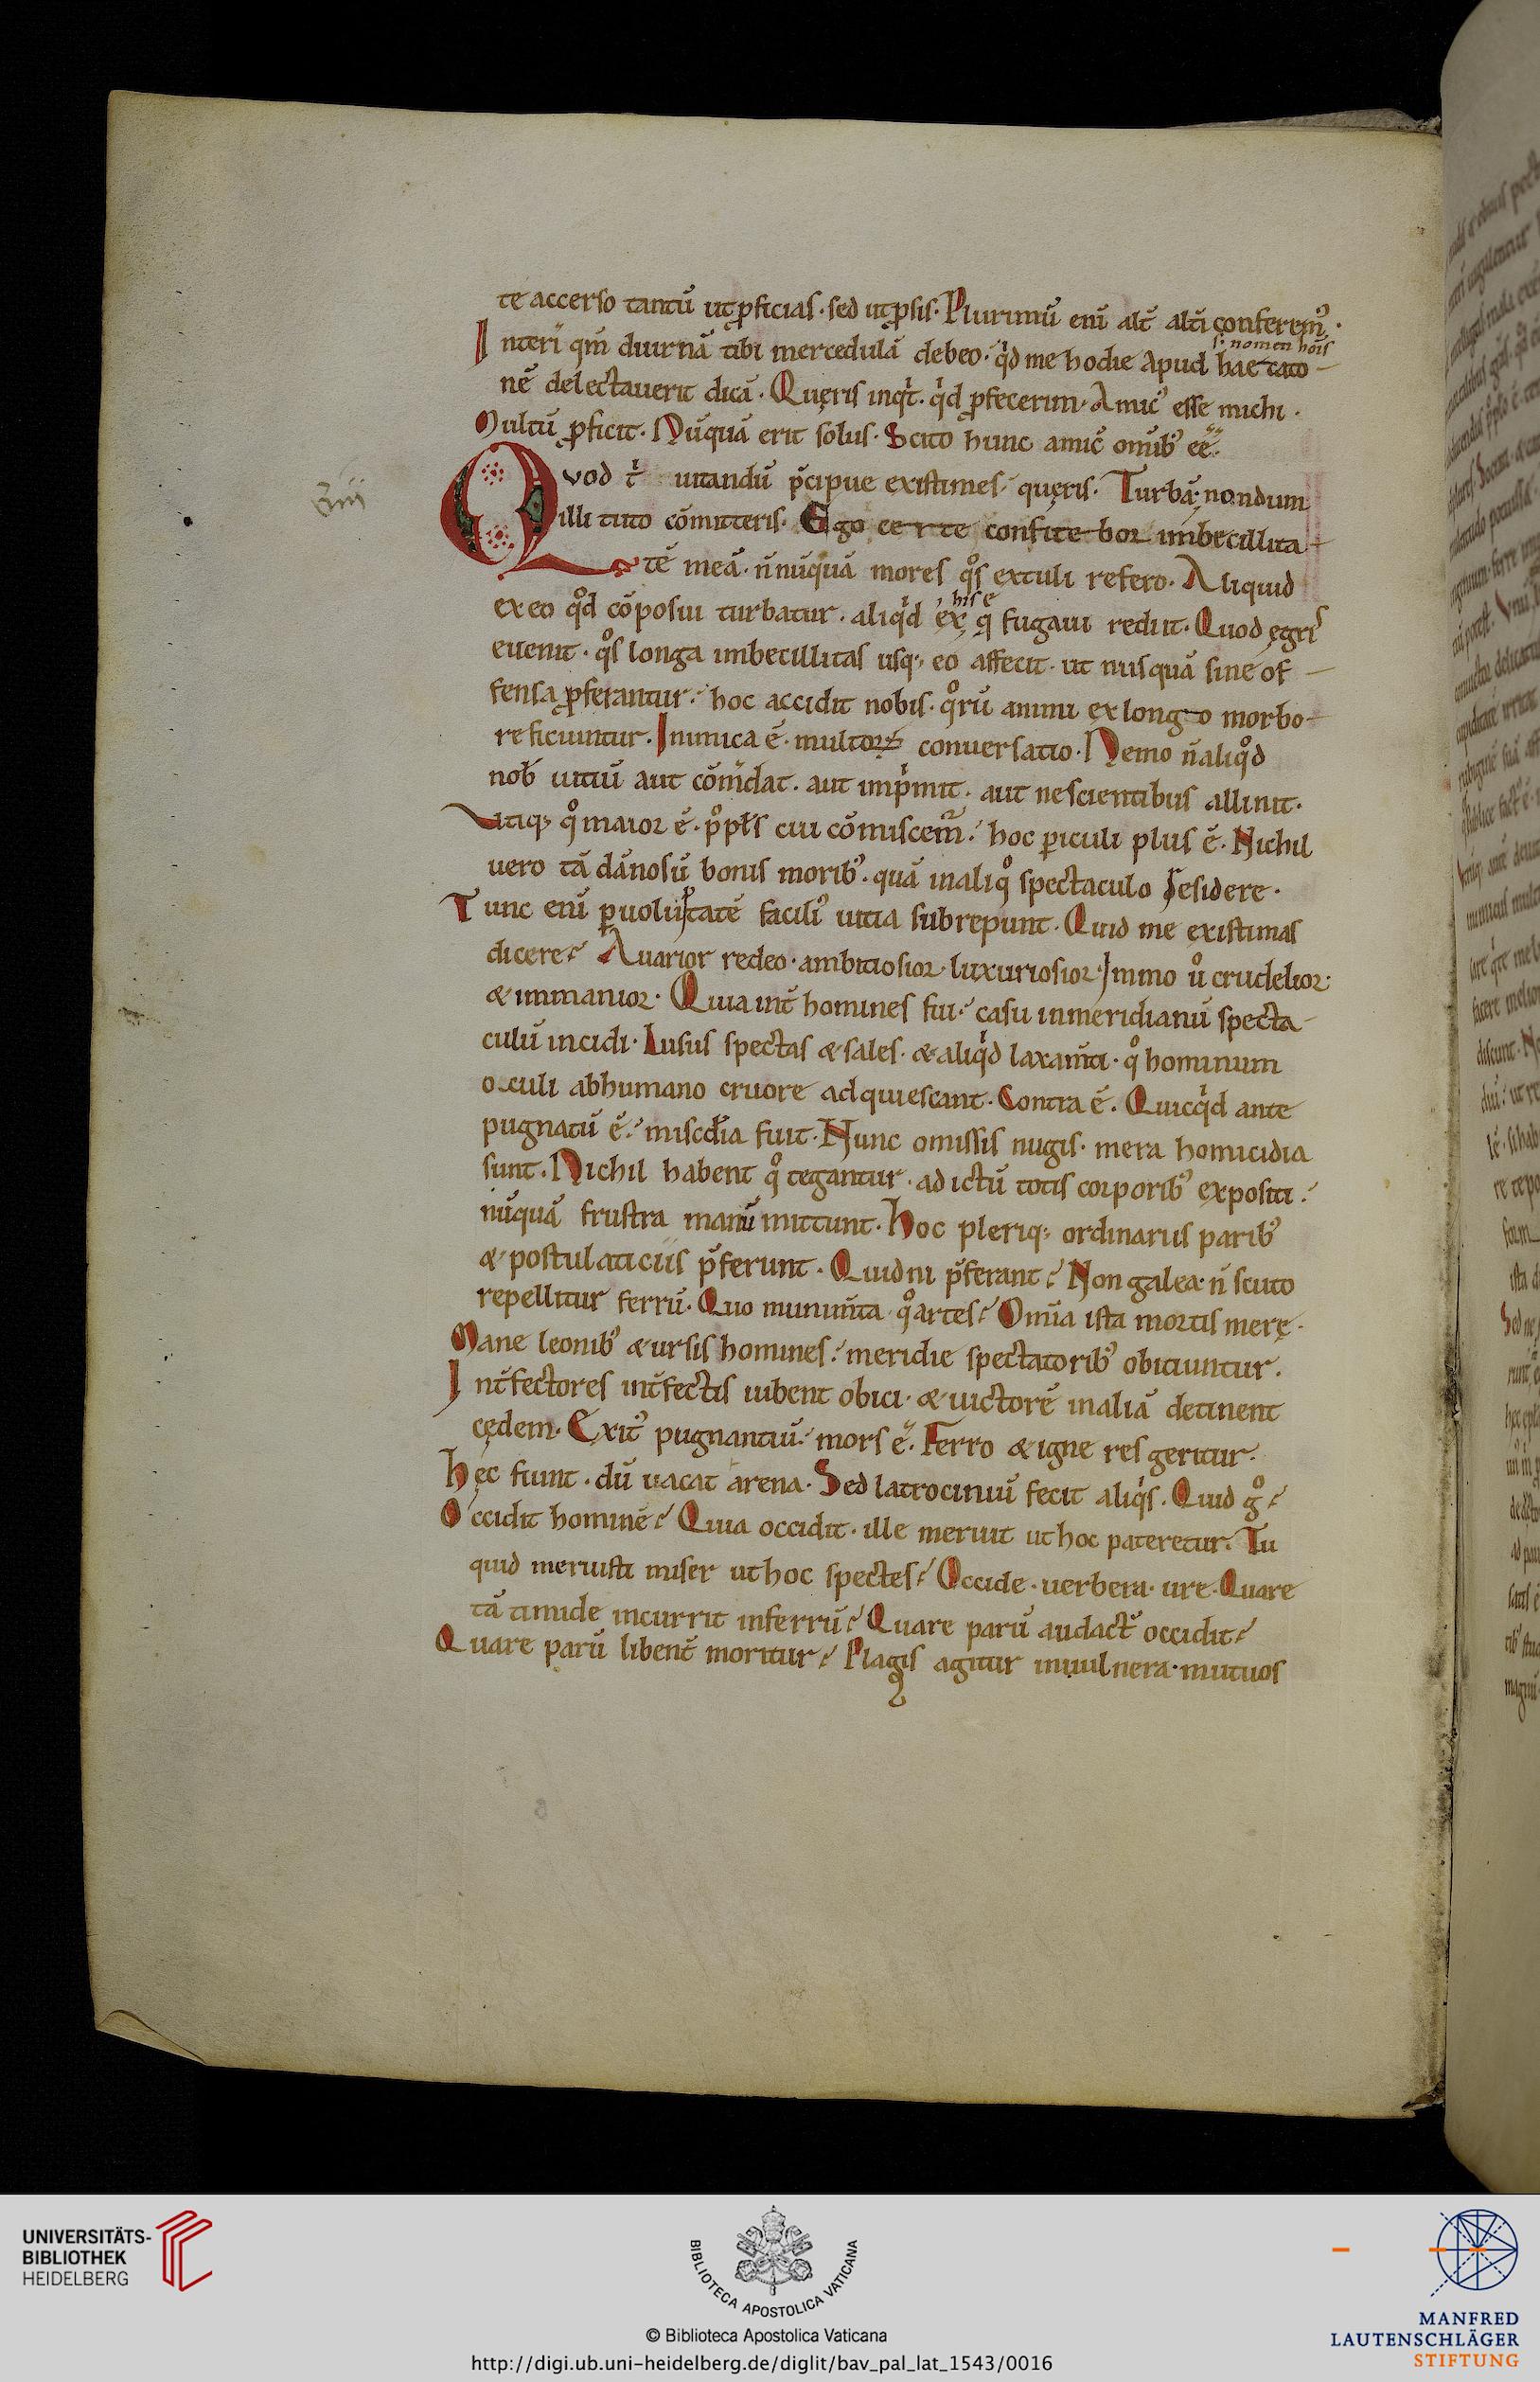 te accerso tantū ut ꝓficias · sed ut ꝓsis · Plurimū enī alt̄ alt̄i conferem᷒ ·
s. nomen hoīs
Interī qm̄ diurnā tibi mercedulā debeo · qͥd me hodie apud haecato-
nē delectauerit dicā · Quęris inqͥt · qͥd ꝓfecerim · Amic᷒ esse michi ·
Multū ꝓficit · Nūquā erit solus · Scito hunc amicū omīb᷒ eē ·
Quod t͛ uitandū p̄cipue existimes · quęris · Turbā · nondum
illi tuto cōmitteris · Ego certe confitebor imbecillita-
tē meā · n̄nūquā mores qͦs extuli refero · Aliquid
his ę
ex eo qͦd cōposui turbatur · aliqͥd ex q̨ fugaui rediit · Quod ęgrͥs
euenit · qͦs longa imbecillitas usq; eo affecit · ut nusquā sine of-
fensa ꝓferantur · hoc accidit nobis · qͦrū animi ex longo morbo-
reficiuntur · Inimica ē · multorꝝ conuersatio · Nemo n̄ aliqͦd
nob̄ uitiū aut cōm̄dat · aut impͥmit · aut nescientibus allinit ·
Vtiq; qͦ maior ē · pͦpl̄s cui cōmiscem᷒ · hoc ꝑiculi plus ē · Nichil
uero tā dānosū bonis morib᷒ · quā in aliqͦ spectaculo desidere ·
Tunc enī ꝑ uoluptatē facili᷒ uitia subrepunt · Quid me existimas
dicere? Auarior redeo · ambitiosior · luxuriosior · Immo uͦ crudelior ·
& immanior · Quia int̄ homines fui · casu in meridianū specta-
culū incidi · Lusus spectas & sales · & aliqͥd laxam̄ti · qͦ hominum
oculi ab humano cruore adquiescant · Contra ē · Quicqͥd ante
pugnatū ē · miscd̄ia fuit · Nunc omissis nugis · mera homicidia
sunt · Nichil habent qͦ tegantur · ad ictū totis corporib᷒ expositi ·
nūquā frustra manū mittunt · Hoc pleriq; ordinariis parib᷒
& postulaticiis p̄ferunt · Quidni p̄ferant? Non galea · n̄ scuto
repellitur ferrū · Quo munim̄ta · qͦ artes? Omīa ista mortis merę ·
Mane leonib᷒ & ursis homines · meridie spectatorib᷒ obiciuntur ·
Int̄fectores int̄fectis iubent obici · & uictorē in aliā detinent
cędem · Exit᷒ pugnantiū · mors ē · Ferro & igne res geritur ·
Hęc fiunt · dū uacat arena · Sed latrociniū fecit aliqͥs · Quid gͦ?
Occidit hominē? Quia occidit · ille meruit ut hoc pateretur · Tu
quid meruisti miser ut hoc spectes? Occide · uerbera · ure · Quare
tā timide incurrit in ferrū? Quare parū audact̄ occidit?
Quare parū libent̄ moritur? Plagis agitur in uulnera · mutuos
UNIVERSITÄTS-
BIBLIOTHEK
HEIDELBERG
BIBLIOTECA APOSTOLICA VATICANA
© Biblioteca Apostolica Vaticana
http://digi.ub.uni-heidelberg.de/diglit/bav_pal_lat_1543/0016
MANFRED
LAUTENSCHLÄGER
STIFTUNG